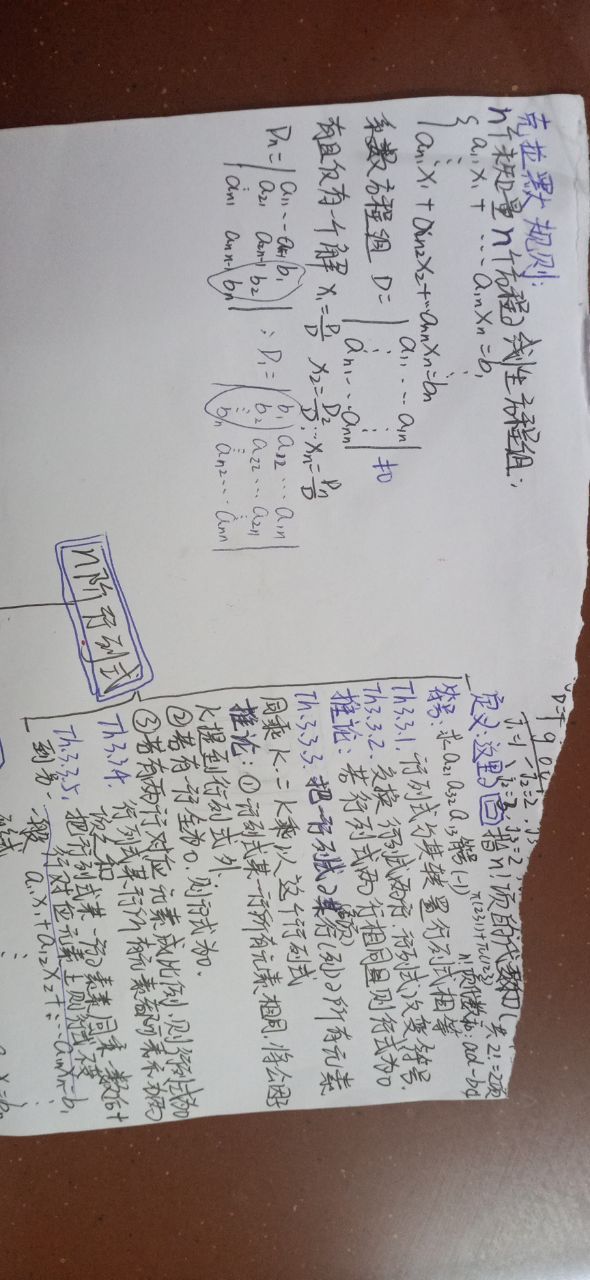 克拉默规则:
n个未知量n个方程的线性方程组:
{ a₁₁x₁ + … a₁ₙxₙ = b₁
⋮
aₙ₁x₁ + aₙ₂x₂ + … aₙₙxₙ = bₙ
系数方程组 D = | a₁₁ … a₁ₙ | ≠0
⋮ ⋮
aₙ₁ … aₙₙ
有且仅有一个解 x₁ = D₁/D x₂ = D₂/D … xₙ = Dₙ/D
Dₙ = | a₁₁ … b₁ | ; D₁ = | b₁ a₂₂ … a₁ₙ |
a₂₁ a₂ₙ₋₁ b₂ b₂ a₂₂ … a₂ₙ
⋮ ⋮
aₙ₁ aₙₙ₋₁ bₙ bₙ aₙ₂ … aₙₙ
n阶行列式
j₁=1, j₂=2
定义:这里的 指n!项的代数和 共2!=2项
n!项代数和 ad-bd
符号: 求a₂₁a₃₂a₁₃符号(-1)
Th3.3.1. 行列式与其转置行列式相等
Th3.3.2. 交换行列式两行,行列式改变符号.
推论: 若行列式两行相同且 则行式为0
Th.3.3.3. 把行列式的某行(列)的所有元素
同乘K = K乘以这个行列式
推论:① 行列式某一行所有元素相同,将公因
K提到行列式外.
② 若有一行全为0.则行式为0.
③ 若有两行对应元素成比例,则行列式为0
Th3.3.4. 行列式某行所有元素都可表示为两
项之和
Th3.3.5. 把行列式某一行的元素同乘一数后+
到另一行对应元素上则行列式不变
一般 a₁₁x₁ + a₁₂x₂ + … a₁ₙxₙ = b₁